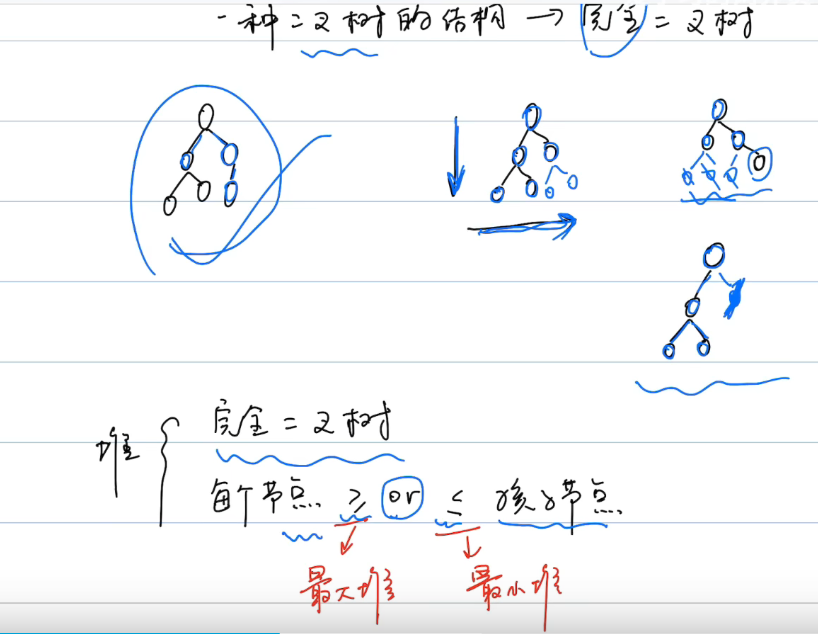 一种二叉树的结构 → 完全二叉树
堆
完全二叉树
每个节点 ≥ or ≤ 孩子节点
最大堆 最小堆